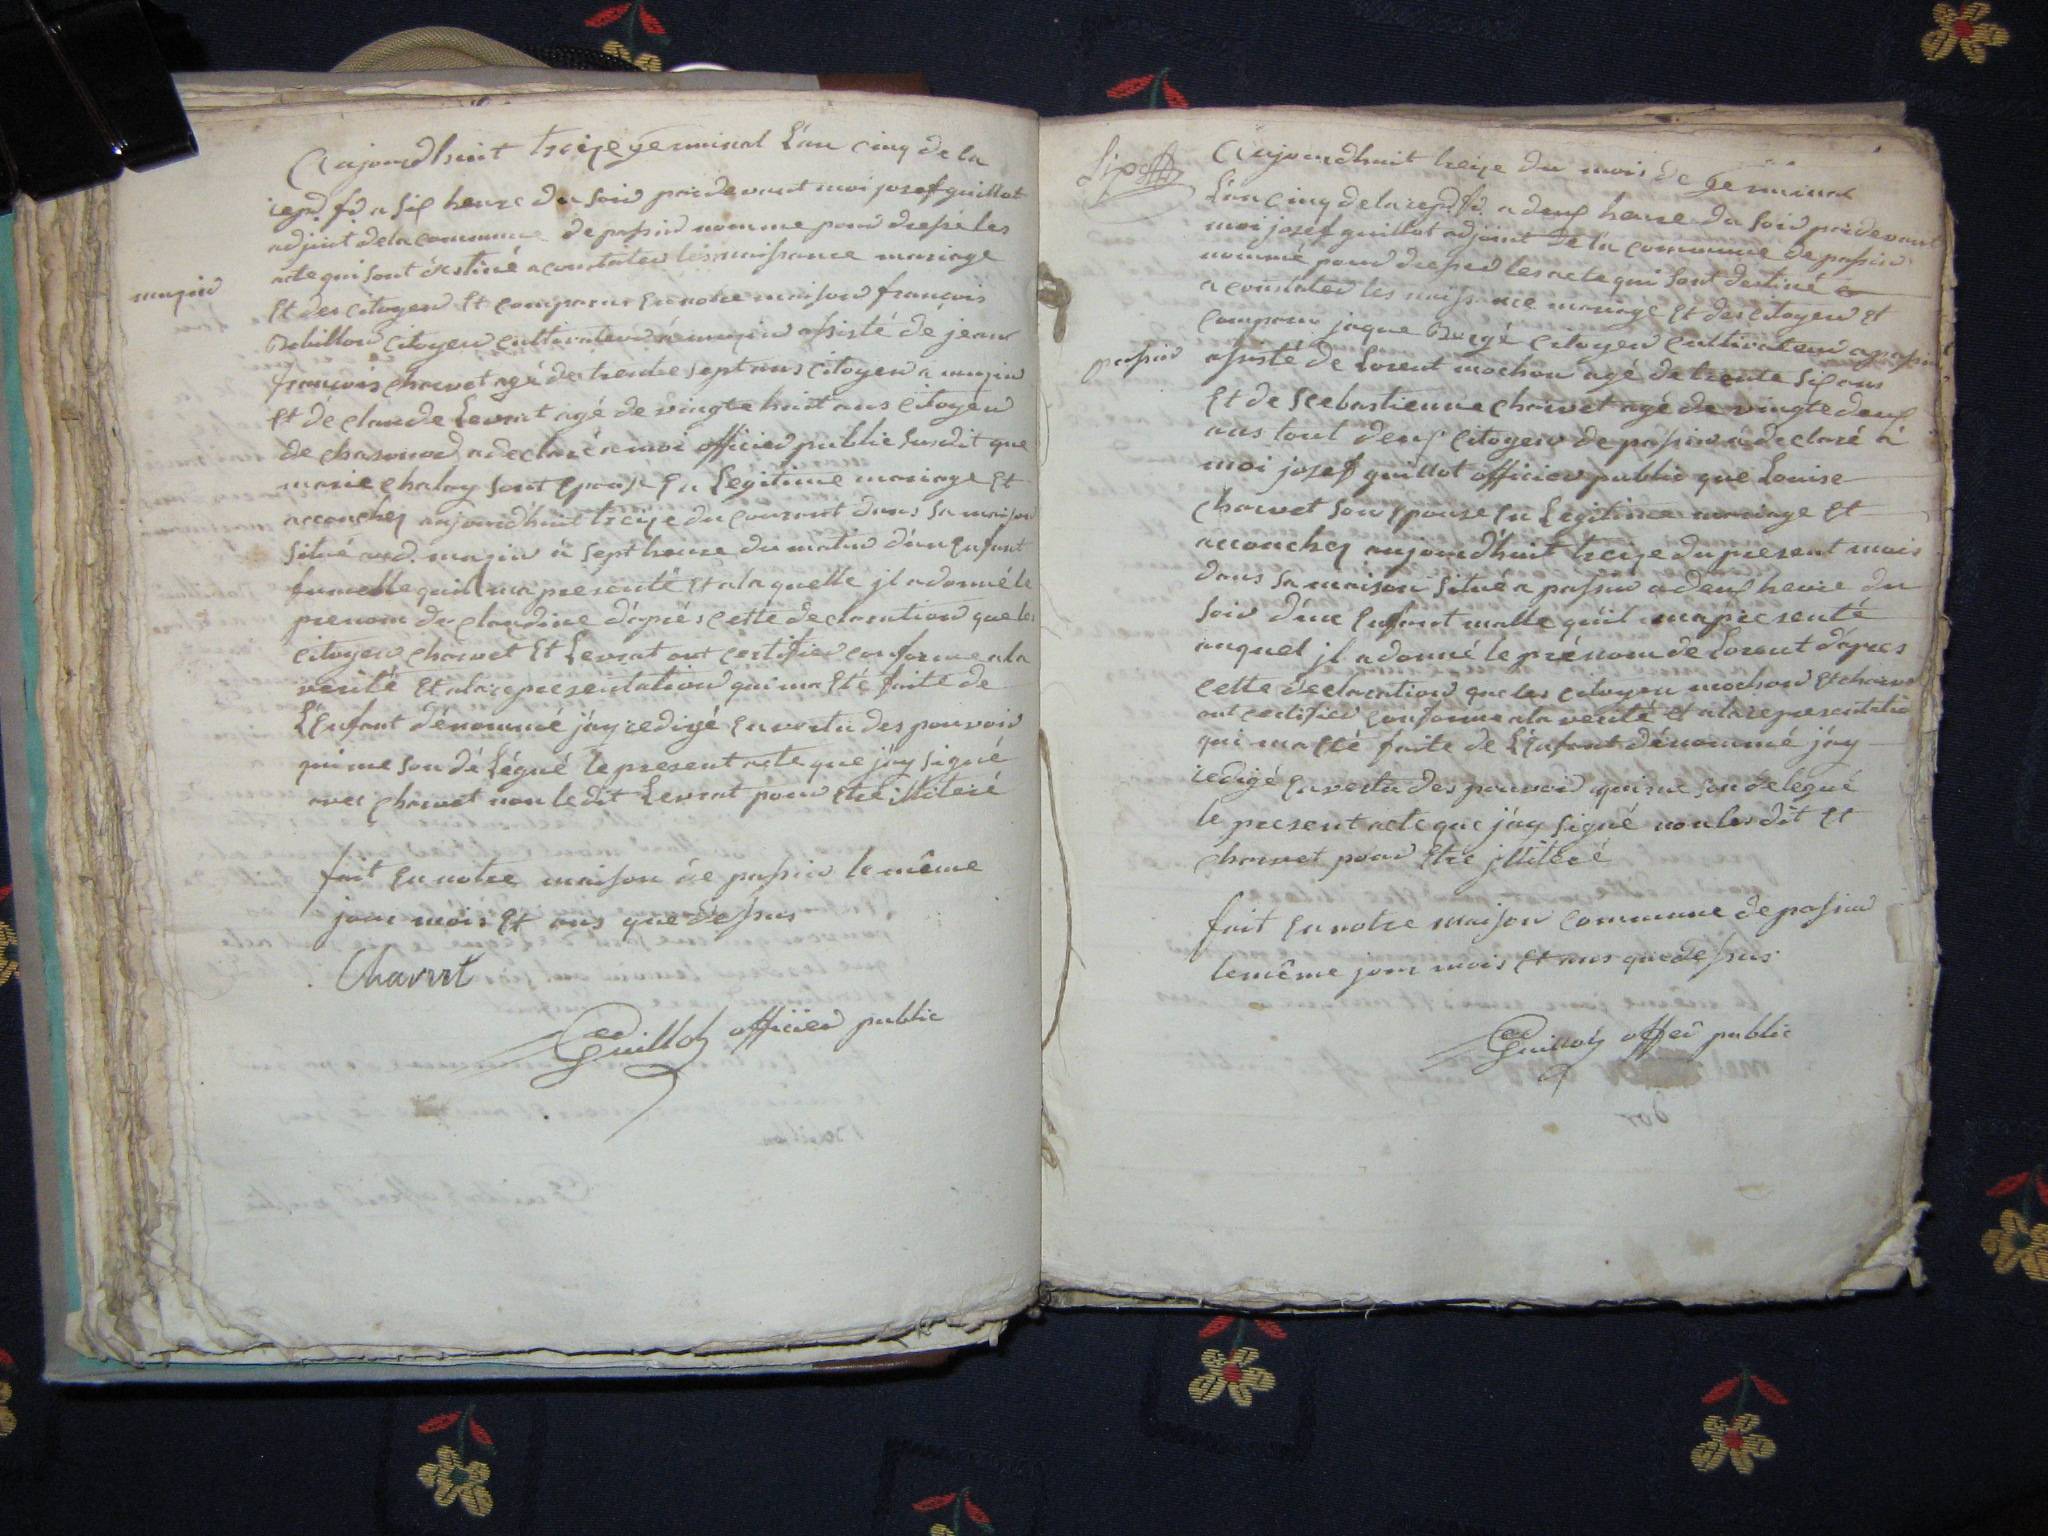 Aujourdhuit treize germinal L'an cinq de la
rep. fr a six heure du soir pardevant moi josef guillot
adjoint de la commune de passin nomme pour dressé les
acte qui sont destiné a constater les naissance mariage
Et des citoyen Et comparu En notre maison françois
Robillon citoyen cultivateur assisté dé jean
françois charvet agé de trente sept ans citoyen a
Et dé claude Levrat agé de vingte huit ans citoyen
de chasonod a declaré a moi officier public susdit que
marie chalay sont Epouse En Legitime mariage Et
accouchez aujourdhuit treize du courant dans sa maison
situé a sept heure du matin d'un Enfant
fumelle quil ma presenté Et a la quelle jl a donné le
prenom de claudine d'aprés cette declaration que les
citoyen charvet Et Levrat ont certifier conforme a la
verité Et a la representation qui ma Eté faite de
L'Enfant dénommé j'ay redigé En vertu des pouvoir
qui me son délégué le present acte que j'ay signé
avec charvet non le dit Levrat pour Etre illiteré
fait En notre maison de passin le même
jour mois Et ans que dessus
Charvet
Guillot officier public
Aujourdhuit treize du mois de Germinal
L'an cinq de la rep. fr. a deux heure du soir pardevant
moi josef guillot adjoint de la commune de passin
nommé pour dresser les acte qui sont destiné
a constater les naissance mariage Et des citoyen Et
comparu jaque Bergé citoyen cultivateur a passin
passin
assisté de Lorent mochon agé de trente six ans
Et de Scebastienne charvet agé de vingte deux
ans tout deux citoyen de passin a declaré a
moi josef guillot officier public que Louise
charvet son Epouse En Legitime mariage Et
accouchez aujourdhuit treize du present mois
dans sa maison situé a passin a deux heure du
soir d'un Enfant malle quil ma presenté
auquel jl a donné le prénom de Lorent d'apres
cette declaration que les citoyen mochon Et charvet
ont certifier conforme a la verité Et a la representatio
qui ma Eté faite de L'Enfant dénommé j'ay
redigé En vertu des pouvoir qui me son delegué
le present acte que j'ay signé non les dit Et
charvet pour Etre jlliteré
fait En notre maison commune de passin
le même jour mois Et ans que dessus
Guillot offer public